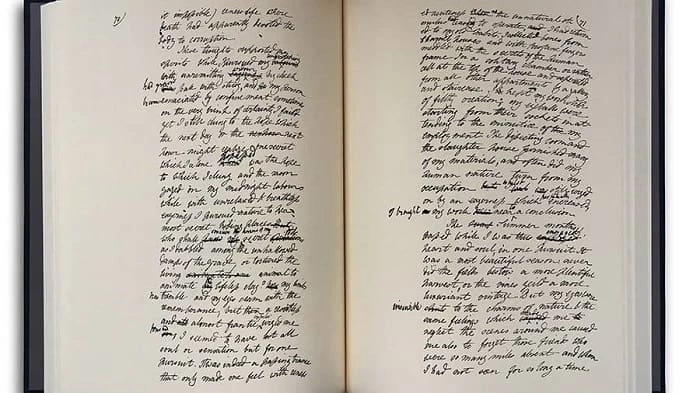 it impossible) renew life where
death had apparently devoted the
body to corruption.
These thoughts supported my
spirits while I pursued my undertaking
with unremitting My cheek
had grown pale with study, and my person
become emaciated by confinement. sometimes
on the very brink of certainty I failed
yet I still clung to the hope which
the next day or the next
hour might realize. One secret
which I alone possessed was the hope
to which I clung and the moon
gazed on my midnight labours
while with unrelaxed & breathless
eagerness I pursued nature to her
most secret hiding places
who shall conceive the horrors of my secret
as I dabbled among the unhallowed
damps of the grave or tortured the
living animal to
animate lifeless clay? My limbs
now tremble and my eyes swim with the
remembrance, but then a resistless
and almost frantic impulse urged me
forward, I seemed to have lost all
soul or sensation but for one
pursuit. It was indeed a passing trance
that only made me feel with renew
the unnatural
stimulus ceasing to operate I had return
ed to my old habits, I collected bones from
charnel houses and with profane fingers
meddled with the secrets of the human
frame. In a solitary chamber or rather
cell at the top of the house and separated
from all other apartments by a gallery
and staircase I kept my workshop
of filthy creation; my eyeballs were
starting from their sockets in at
tending to the minutiae of the em
ployment. The dissecting room and
the slaughter house furnished many
of my materials, and often did my
human nature turn from my
occupation but still urged
on by an eagerness which increased,
I brought my work near to a conclusion.
The summer months
passed while I was engaged
heart and soul in one pursuit. It
was a most beautiful season never
did the fields bestow a more plentiful
harvest, or the vines yeild a more
luxuriant vintage. But my eyes were
insensible to the charms of nature & the
same feelings which made me to
neglect the scenes around me caused
me also to forget those friends who
were so many miles absent and whom
I had not seen for so long a time